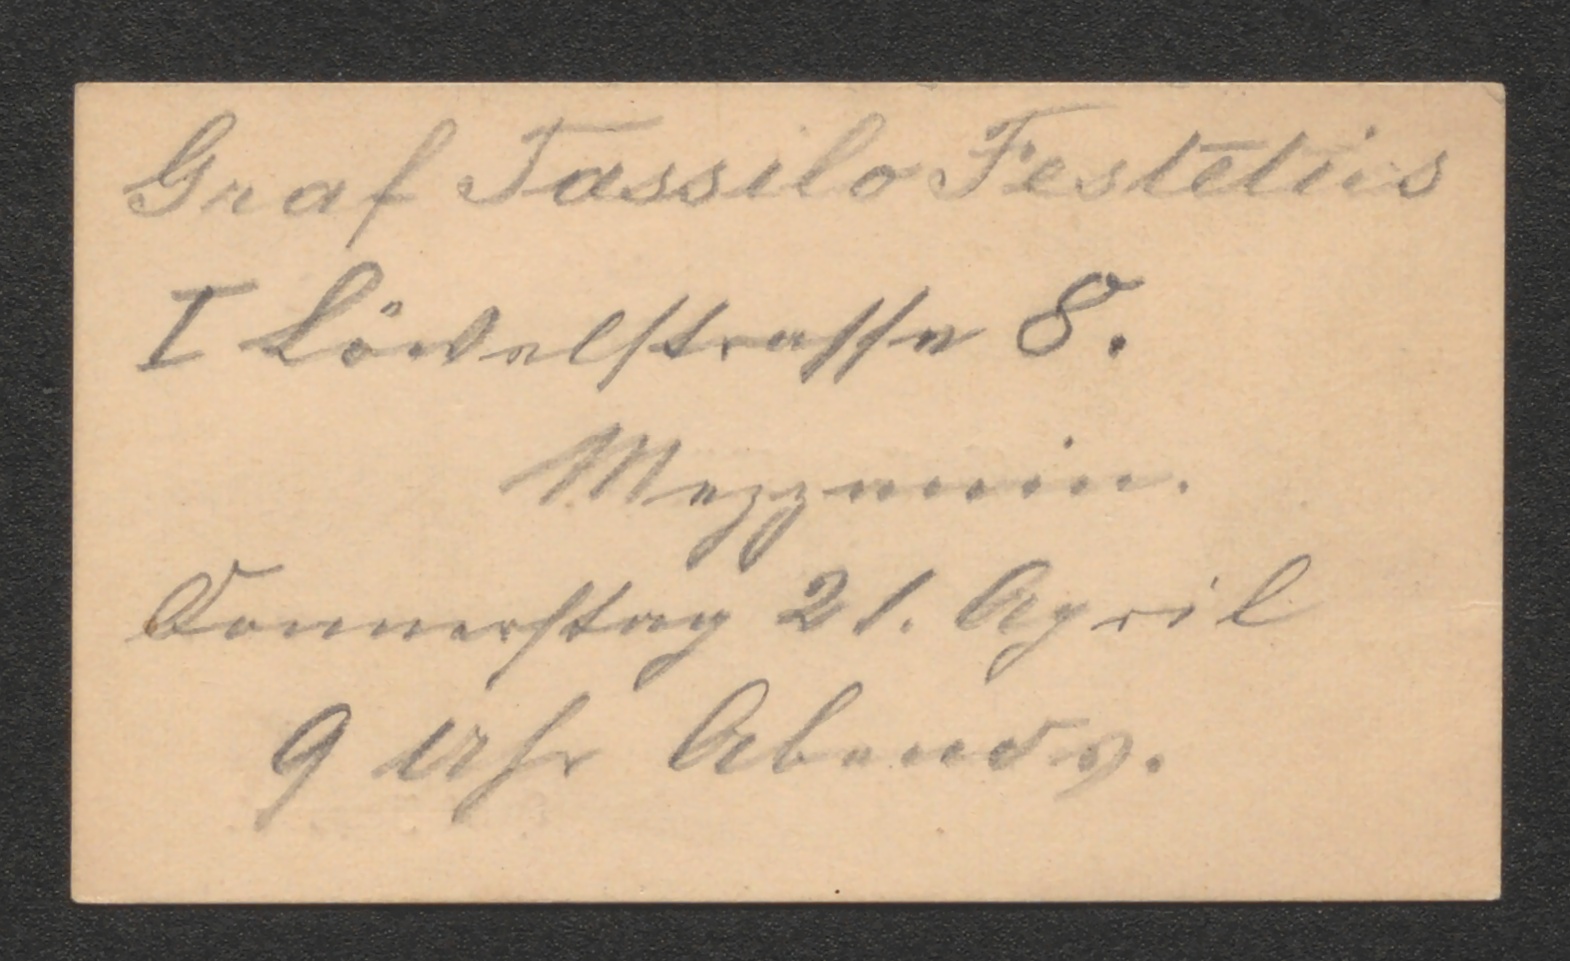 Graf Tassilo Festetics
I Löwelstrasse 8.
Mezzanin.
Donnerstag 21. April
9 Uhr Abends.